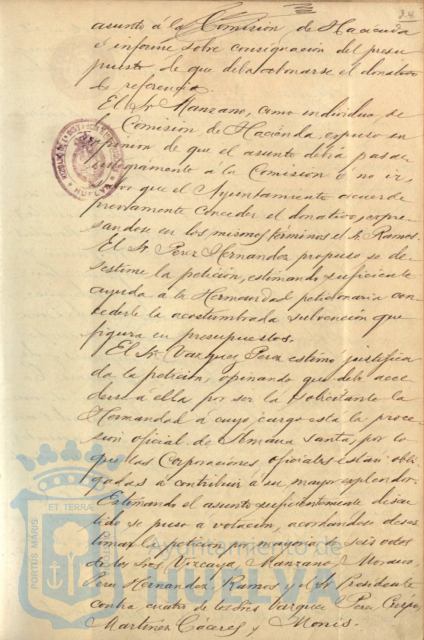 24
asunto á la Comisión de Hacienda
é informe sobre consignación del presu
puesto de que deba abonarse el donativo
de referencia.
El Sr. Manzano, como individuo de
la Comisión de Hacienda, expuso su
opinión de que el asunto debía pasar
á la Comisión ó no ir,
que el Ayuntamiento acuerde
previamente conceder el donativo, expre
sandose en los mismos términos el Sr. Ramos.
El Sr. Perez Hernandez propuso se de-
sestime la petición, estimando suficiente
ayuda á la Hermandad peticionaria con-
cederle la acostumbrada subvención que
figura en presupuestos.
El Sr. Vazquez Perez estimó justifica
da la petición, opinando que debe acce
derse á ella por ser la solicitante la
Hermandad á cuyo cargo está la proce-
sión oficial de Semana Santa, por lo
que las Corporaciones oficiales están obli
gadas á contribuir á su mayor esplendor.
Estimando el asunto suficientemente discu
tido se puso á votación, acordandose deses
timar la petición por mayoría de seis votos
de los Sres Vizcaya, Manzano, Morano,
Perez Hernandez, Ramos y el Sr. Presidente
contra cuatro de los Sres Vazquez Perez, Crespo,
Martinez Cáceres y Monis.
HUELVA
PORTUS MARIS ET TERRAE
Ayuntamiento de
HUELVA